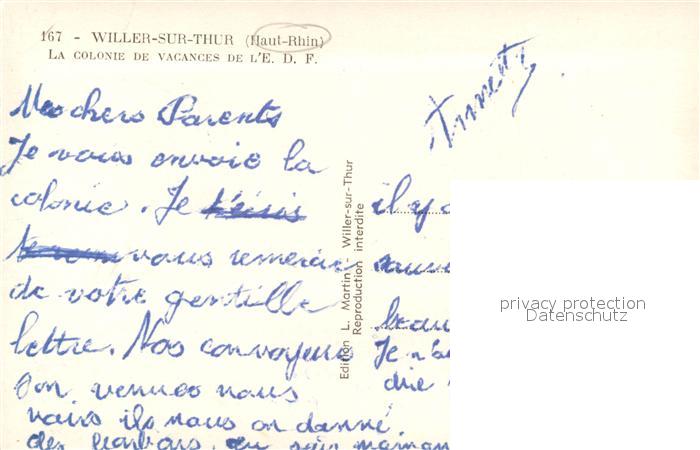 167 - WILLER-SUR-THUR (Haut-Rhin)
LA COLONIE DE VACANCES DE L'E. D. F.
Annette
Mes chers Parents
Je vous envoie la
colonie. Je
vous remercie
de votre gentille
lettre. Nos convoyeurs
son venues nous
voirs ils nous on donné
des bonbons. au soir maman
Edition L. Martin Willer-sur-Thur
Reproduction interdite
il y a
beau
Je n'ai
dire
privacy protection
Datenschutz